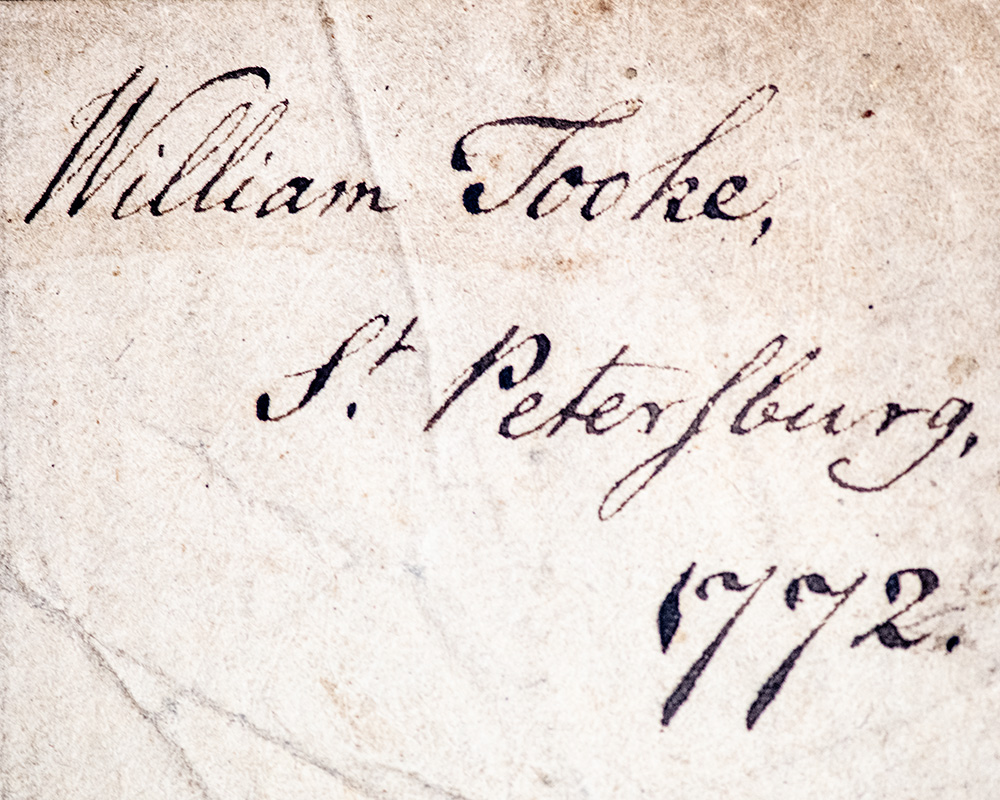 William Tooke,
St. Peterſburg,
1772.